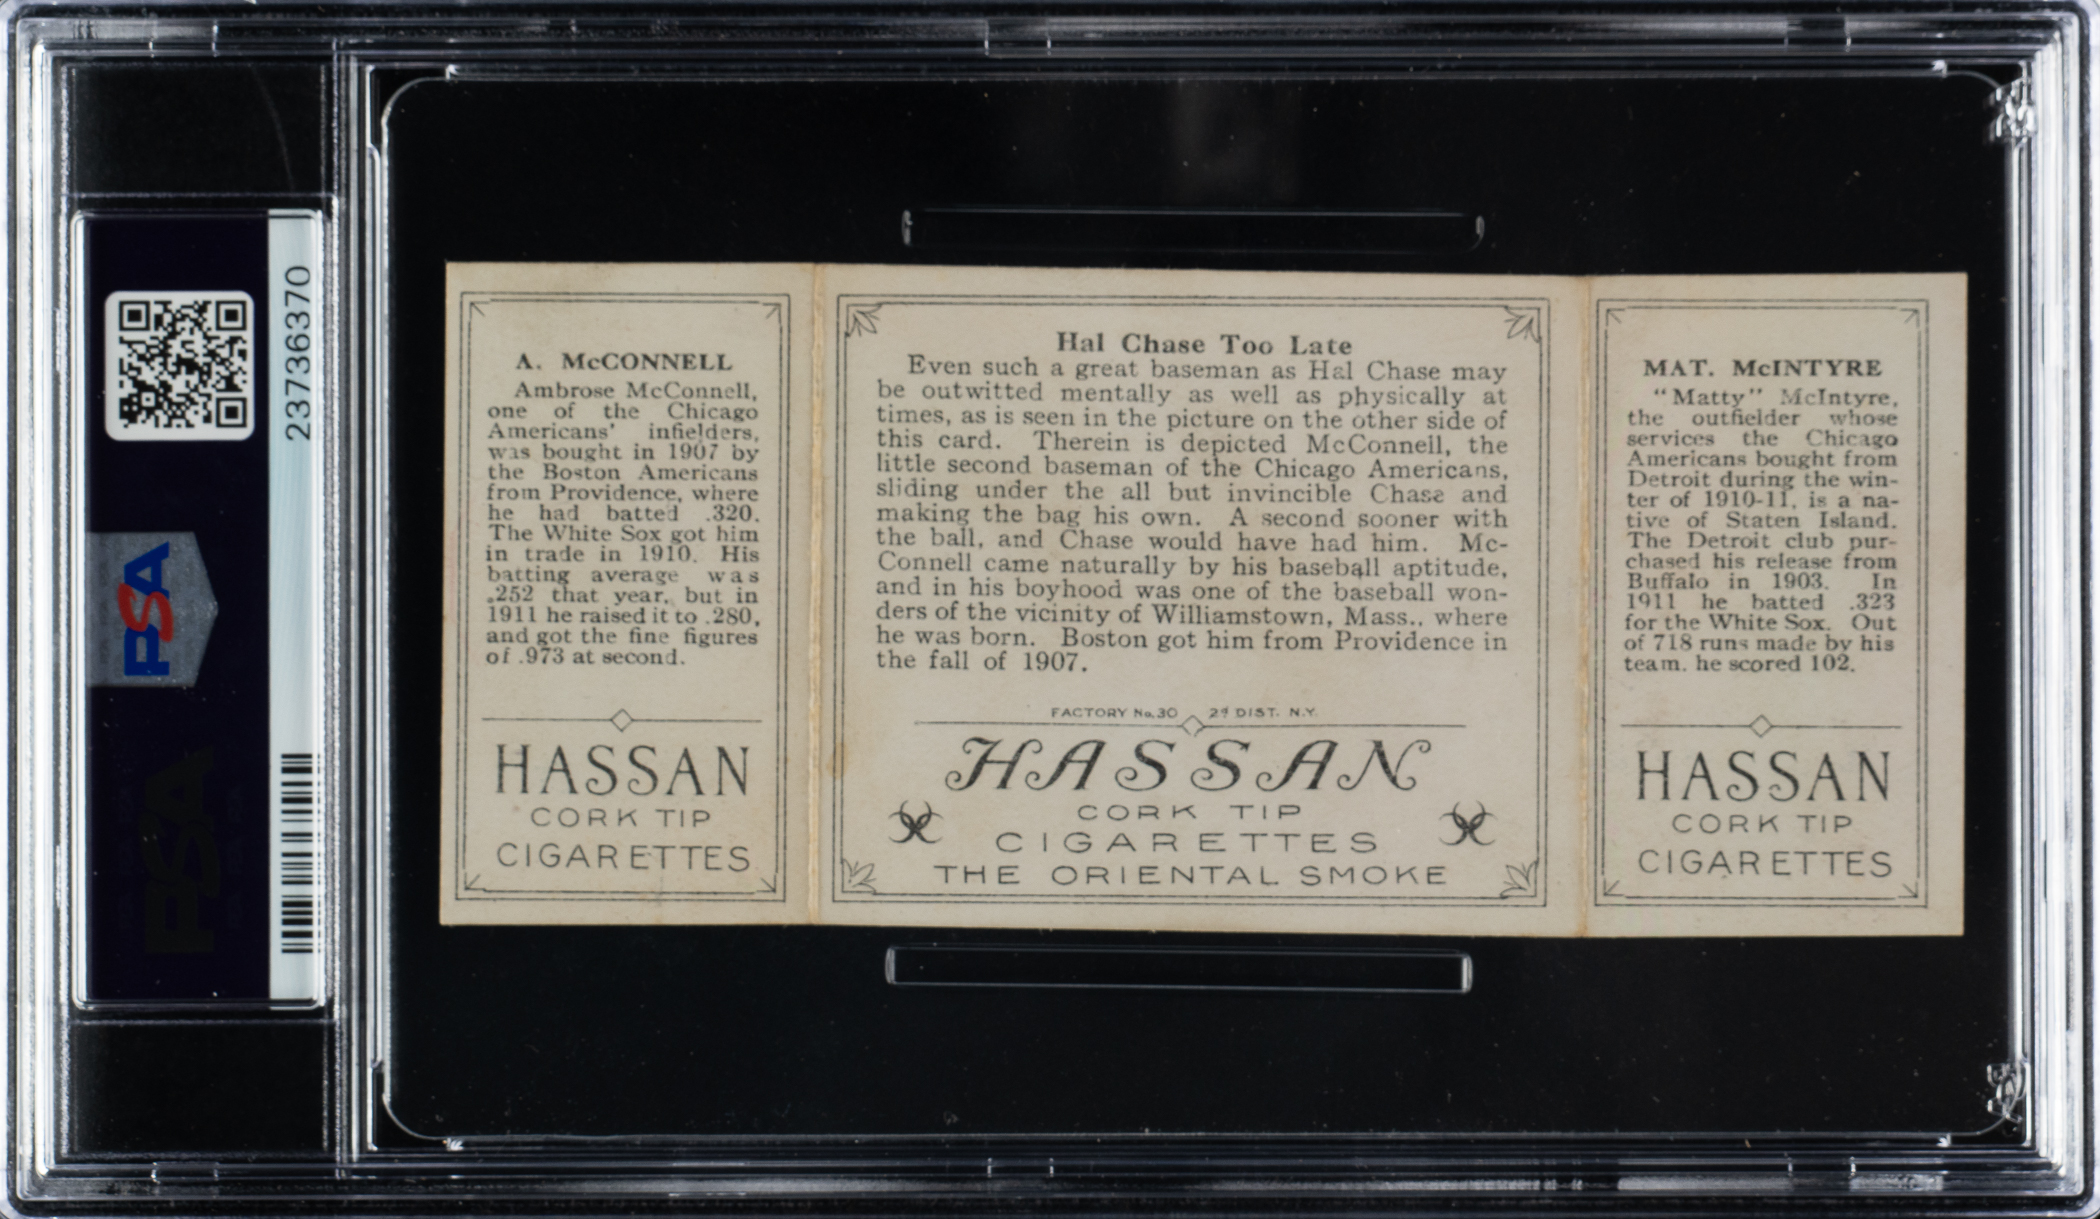 23736370
PSA
PSA
A. McCONNELL
Ambrose McConnell,
one of the Chicago
Americans' infielders,
was bought in 1907 by
the Boston Americans
from Providence, where
he had batted .320.
The White Sox got him
in trade in 1910. His
batting average was
.252 that year, but in
1911 he raised it to .280,
and got the fine figures
of .973 at second.
HASSAN
CORK TIP
CIGARETTES
Hal Chase Too Late
Even such a great baseman as Hal Chase may
be outwitted mentally as well as physically at
times, as is seen in the picture on the other side of
this card. Therein is depicted McConnell, the
little second baseman of the Chicago Americans,
sliding under the all but invincible Chase and
making the bag his own. A second sooner with
the ball, and Chase would have had him. Mc-
Connell came naturally by his baseball aptitude,
and in his boyhood was one of the baseball won-
ders of the vicinity of Williamstown, Mass., where
he was born. Boston got him from Providence in
the fall of 1907.
FACTORY No. 30 2d DIST. N.Y.
HASSAN
CORK TIP
CIGARETTES
THE ORIENTAL SMOKE
MAT. McINTYRE
"Matty" McIntyre,
the outfielder whose
services the Chicago
Americans bought from
Detroit during the win-
ter of 1910-11, is a na-
tive of Staten Island.
The Detroit club pur-
chased his release from
Buffalo in 1903. In
1911 he batted .323
for the White Sox. Out
of 718 runs made by his
team, he scored 102.
HASSAN
CORK TIP
CIGARETTES